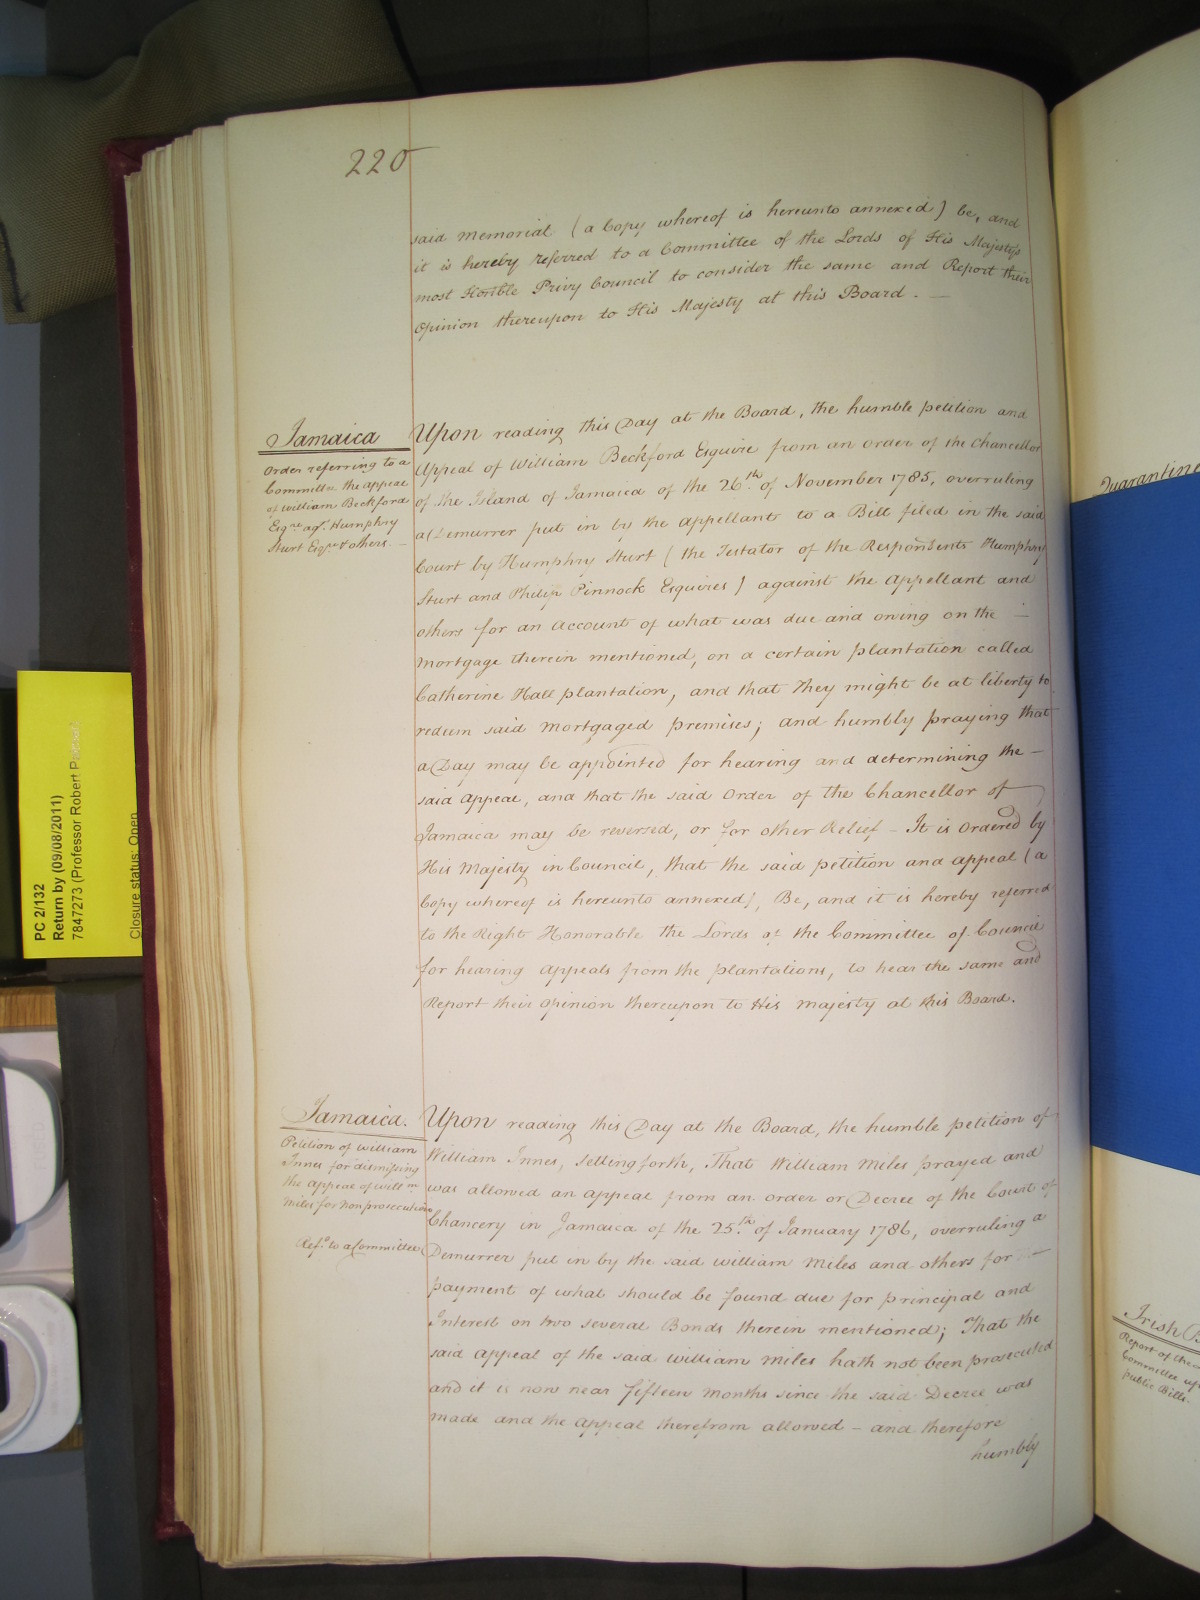 220
said Memorial (a Copy whereof is hereunto annexed) be, and
it is hereby referred to a Committee of the Lords of His Majestys
most Honble Privy Council to consider the same and Report their
Opinion thereupon to His Majesty at this Board.
Jamaica
Order referring to a
Committee the appeal
of William Beckford
Esqre agt. Humphry
Sturt Esqr. & others
Upon reading this Day at the Board, the humble petition and
Appeal of William Beckford Esquire from an order of the Chancellor
of the Island of Jamaica of the 26th. of November 1785, overruling
a Demurrer put in by the appellant to a Bill filed in the said
Court by Humphry Sturt (the Testator of the Respondents Humphry
Sturt and Philip Pinnock Esquires) against the Appellant and
others for an Account of what was due and owing on the
Mortgage therein mentioned, on a certain plantation called
Catherine Hall plantation, and that they might be at liberty to
redeem said Mortgaged premises; and humbly praying that
a Day may be appointed for hearing and determining the
said Appeal, and that the said Order of the Chancellor of
Jamaica may be reversed, or for other Relief - It is Ordered by
His Majesty in Council, that the said petition and appeal (a
Copy whereof is hereunto annexed), Be, and it is hereby referred
to the Right Honorable the Lords of the Committee of Council
for hearing Appeals from the plantations, to hear the same and
Report their Opinion thereupon to His Majesty at this Board.
Jamaica.
Petition of William
Innes for dismissing
the Appeal of Willm
Miles for nonprosecution
Refd. to a Committee
Upon reading this Day at the Board, the humble petition of
William Innes, setting forth, That William Miles prayed and
was allowed an appeal from an order or Decree of the Court of
Chancery in Jamaica of the 25th. of January 1786, overruling a
Demurrer put in by the said William Miles and others for
payment of what should be found due for principal and
Interest on two several Bonds therein mentioned; That the
said Appeal of the said William Miles hath not been prosecuted
and it is now near fifteen Months since the said Decree was
made and the Appeal therefrom allowed - and therefore
humbly
PC 2/132
Return by (09/08/2011)
7847273 (Professor Robert
Closure status: Open
Quarantine
Irish B
Report of the
Committee up
public Bills.